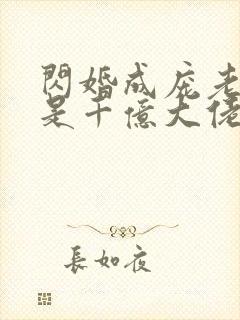 閃婚成寵老
是千億大佬
長如夜